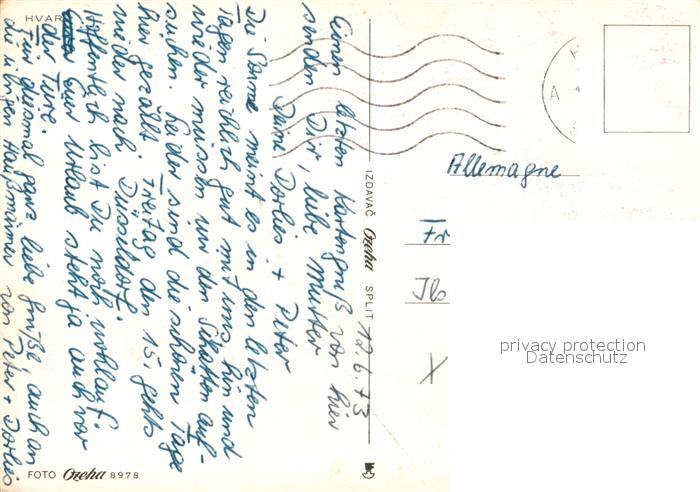 HVAR
12.6.73
Einen letzten Kartengruß von hier
senden Dir, liebe Mutter
Deine Dorlies + Peter
Die Sonne meint es in den letzten
Tagen reichlich gut mit uns, hin und
wieder müssen wir den Schatten auf-
suchen. Leider sind die schönen Tage
hier gezählt. Freitag, den 15. gehts
wieder nach Düsseldorf.
Hoffentlich bist Du noch wohlauf.
Euer Urlaub steht ja auch vor
der Türe.
Für diesmal ganz liebe Grüße auch an
die übrigen Haußmänner von Peter + Dorlies
IZDAVAČ Ozeha SPLIT
FOTO Ozeha 8978
Allemagne
Fr
X
privacy protection
Datenschutz